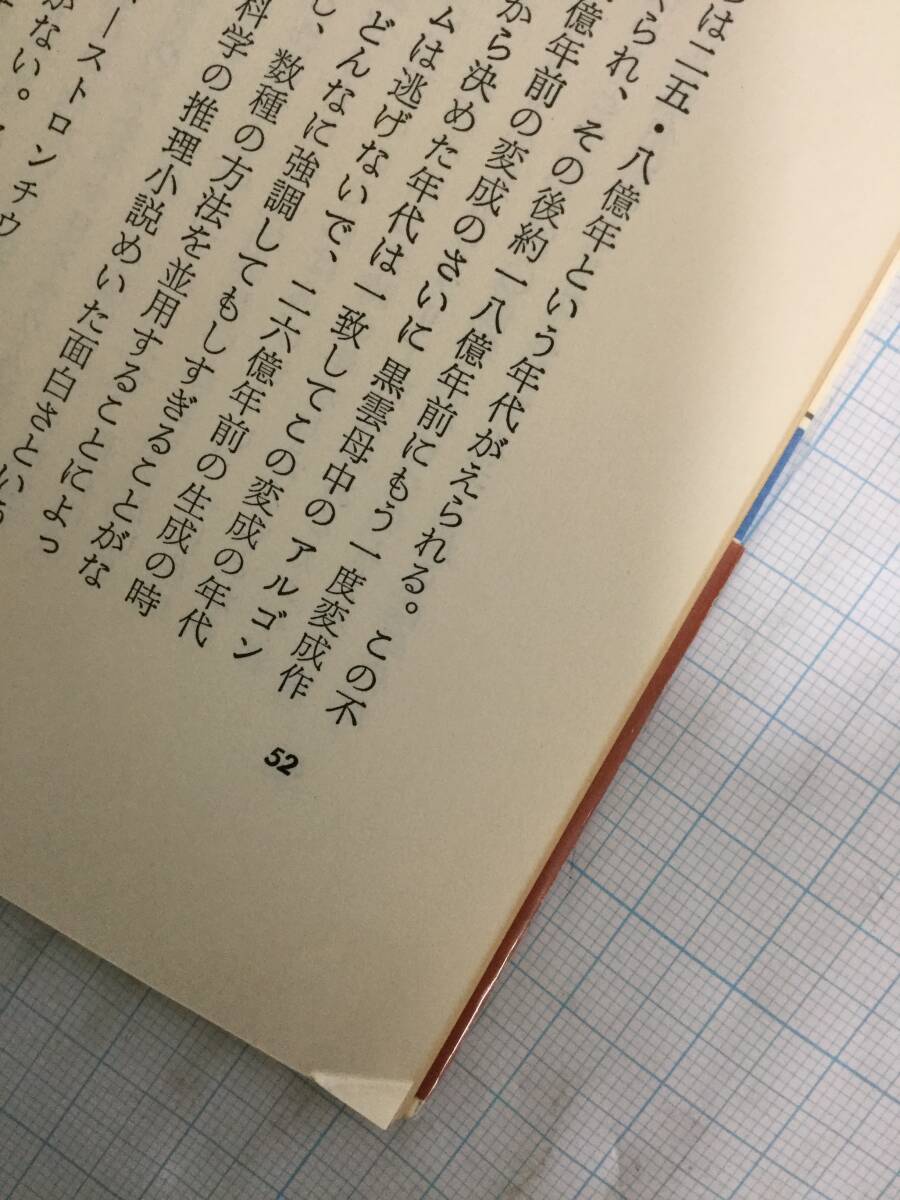 は二五・八億年という年代がえられる。この不
くられ、その後約一八億年前にもう一度変成作
億年前の変成のさいに黒雲母中のアルゴン
から決めた年代は一致してこの変成の年代
ムは逃げないで、二六億年前の生成の時
どんなに強調してもしすぎることがな
し、数種の方法を並用することによっ
科学の推理小説めいた面白さという
ーストロンチウ
がない。
52